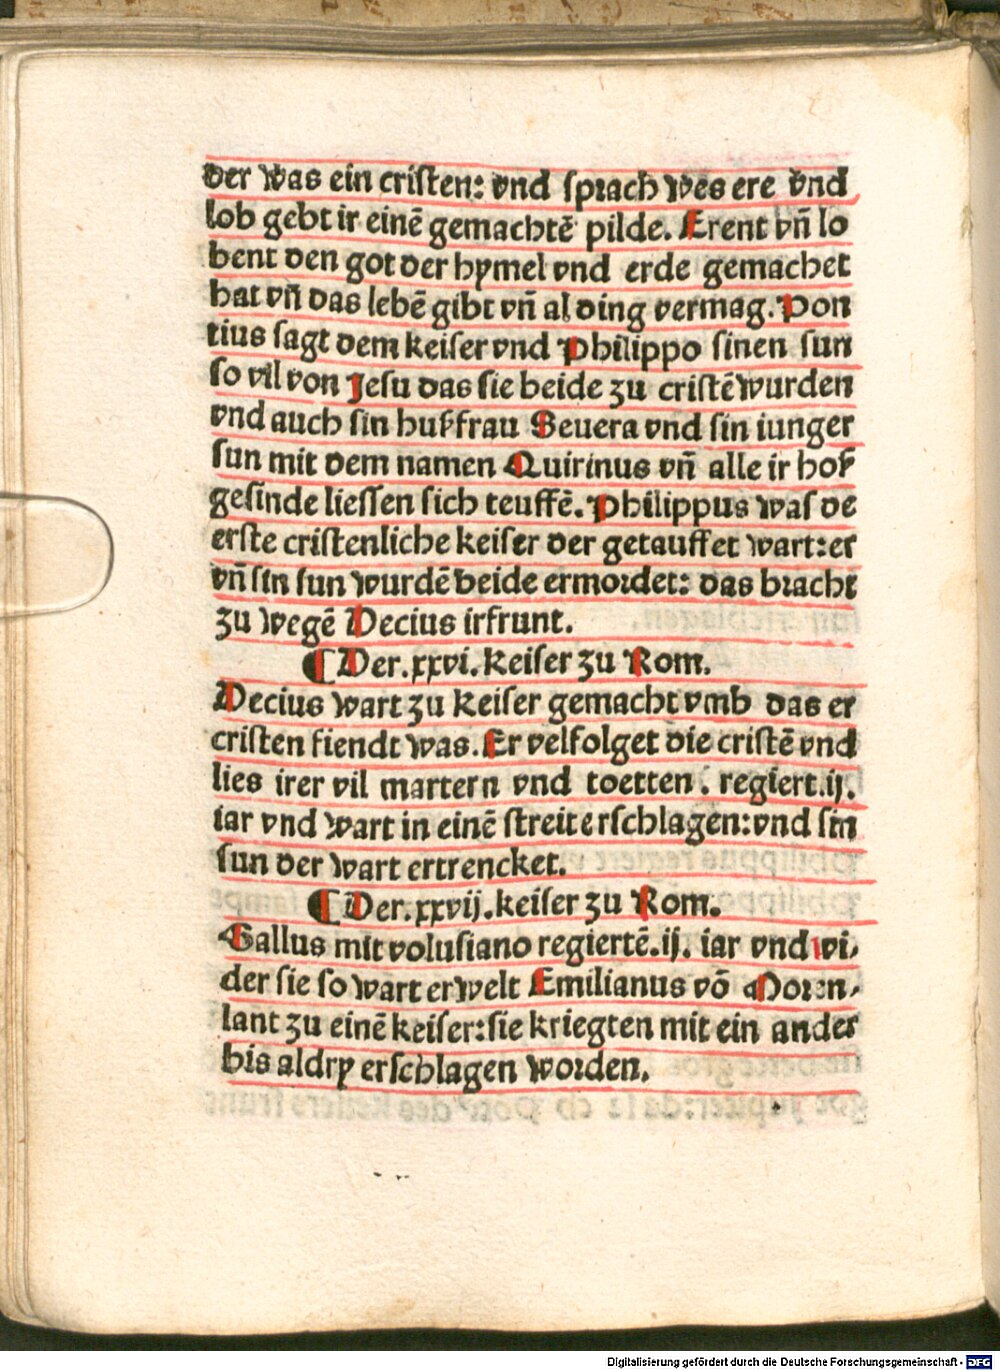 der was ein cristen: vnd sprach wes ere vnd
lob gebt ir einē gemachtē pilde. Erent vn̄ lo
bent den got der hymel vnd erde gemachet
hat vn̄ das lebē gibt vn̄ al ding vermag. Pon
tius sagt dem keiser vnd Philippo sinen sun
so vil von Jesu das sie beide zu cristē wurden
vnd auch sin husfrau Seuera vnd sin iunger
sun mit dem namen Quirinus vn̄ alle ir hof
gesinde liessen sich teuffē. Philippus was de
erste cristenliche keiser der getauffet wart: er
vn̄ sin sun wurdē beide ermordet: das bracht
zu wegē Decius ir frunt.
¶ Der .xxvi. keiser zu Rom.
Decius wart zu keiser gemacht vmb das er
cristen fiendt was. Er velfolget die cristē vnd
lies irer vil martern vnd toetten . regiert .ij.
iar vnd wart in einē streit erschlagen: vnd sin
sun der wart ertrencket.
¶ Der .xxvij. keiser zu Rom.
Gallus mit volusiano regiertē .ij. iar vnd wi-
der sie so wart erwelt Emilianus vō Moren-
lant zu einē keiser: sie kriegten mit ein ander
bis al dry erschlagen worden.
Digitalisierung gefördert durch die Deutsche Forschungsgemeinschaft - DFG